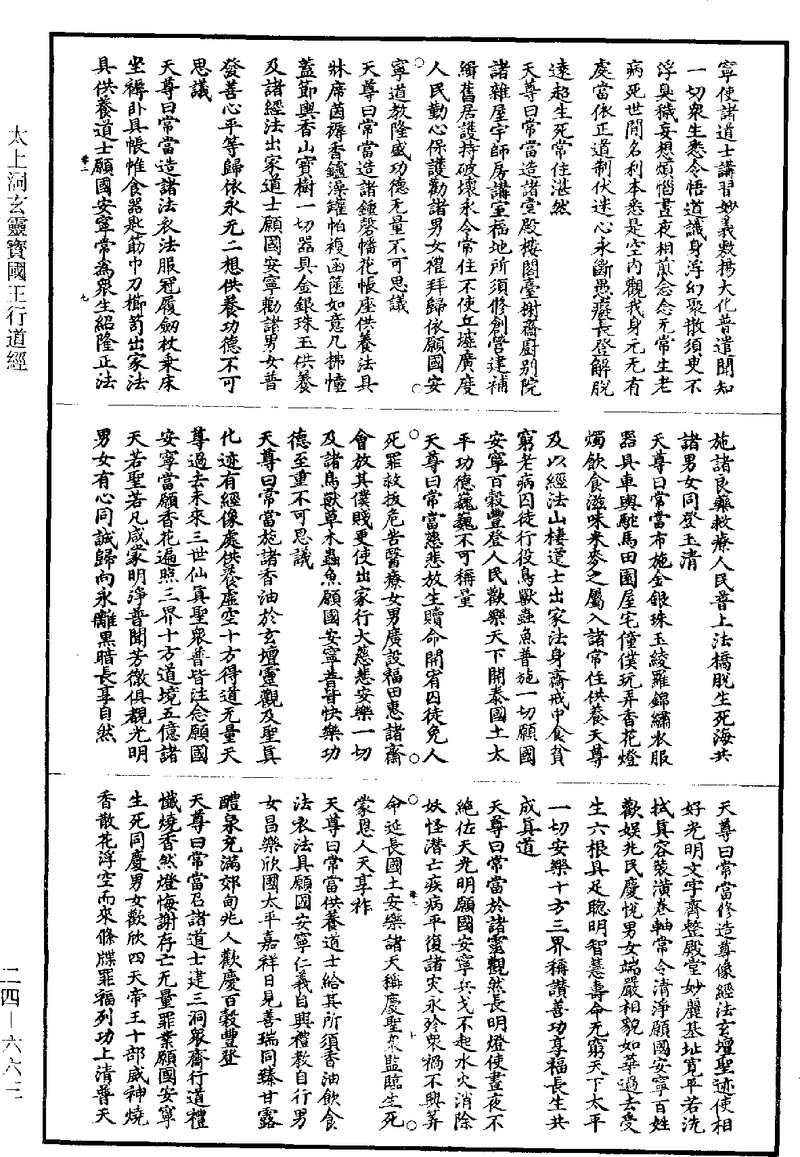 寧使諸道士講習妙義敷揚大化普遣聞知
一切衆生悉令悟道識身浮幻聚散須臾不
浮臭穢妄想煩惱晝夜相煎念念无常生老
病死世間名利本悉是空内觀我身元无有
處當依正道制伏迷心永斷愚癡長登解脫
遠超生死常住湛然
天尊曰常當造諸堂殿樓閣臺榭齋厨别院
諸雜屋宇師房講室福地所須修創營建補
緝舊居護持破壞永令常住不使丘墟廣度
人民勤心保護勸諸男女禮拜歸依願國安
寧道教隆盛功德无量不可思議
天尊曰常當造諸鍾磬幡花帳座供養法具
牀席茵褥香鑪澡罐帕複函篋如意几拂幢
蓋節輿香山寶樹一切器具金銀珠玉供養
及諸經法出家道士願國安寧勸諸男女普
發善心平等歸依永元二想供養功德不可
思議
天尊曰常當造諸法衣法服冠履劒杖乘床
坐褥卧具帳帷食器匙筯巾刀櫛笥出家法
具供養道士願國安寧常爲衆生紹隆正法
施諸良藥救療人民普上法橋脫生死海共
諸男女同登玉清
天尊曰常當布施金銀珠玉綾羅錦繡衣服
器具車輿駝馬田園屋宅僮僕玩弄香花燈
燭飲食滋味米麥之屬入諸常住供養天尊
及以經法山棲道士出家法身齋戒中食貧
窮老病囚徒行役鳥獸蟲魚普施一切願國
安寧百穀豐登人民歡樂天下開泰國土太
平功德巍巍不可稱量
天尊曰常當慈悲放生贖命開宥囚徒免人
死罪救拔危苦醫療女男廣設福田惠諸齋
會放其僕賤更使出家行大慈悲安樂一切
及諸鳥獸草木蟲魚願國安寧普皆快樂功
德至重不可思議
天尊曰常當施諸香油於玄壇靈觀及聖真
化迹有經像處供養虛空十方得道无量天
尊過去未來三世仙真聖衆普皆注念願國
安寧當願香花遍照三界十方道境五億諸
天若聖若凡咸蒙明淨普聞芳馥俱覩光明
男女有心同誠歸向永離黒暗長享自然
天尊曰常當修造尊像經法玄壇聖迹使相
好光明文字齊整殿堂妙麗基址寬平若洗
拭真容裝潢卷軸常令清淨願國安寧百姓
歡娱兆民慶悅男女端嚴相貌如華過去受
生六根具足聦明智慧壽命无窮天下太平
一切安樂十方三界稱讚善功享福長生共
成真道
天尊曰常當於諸靈觀然長明燈使晝夜不
絶佐天光明願國安寧兵戈不起水火消除
妖怪潜亡疾病平復諸灾永殄衆禍不興筭
命延長國土安樂諸天稱慶聖衆監臨生死
蒙恩人天享祚
天尊曰常當供養道士給其所須香油飲食
法衣法具願國安寧仁義自興禮教自行男
女昌樂欣國太平嘉祥日見善瑞同臻甘露
醴泉充滿郊甸兆人歡慶百穀豐登
天尊曰常當召諸道士建三洞衆齋行道禮
懺燒香然燈悔謝存亡无量罪業願國安寧
生死同慶男女歡欣四天帝王十部威神燒
香散花浮空而來條牒罪福列功上清普天
太上洞玄靈寶國王行道經
二四—六六三